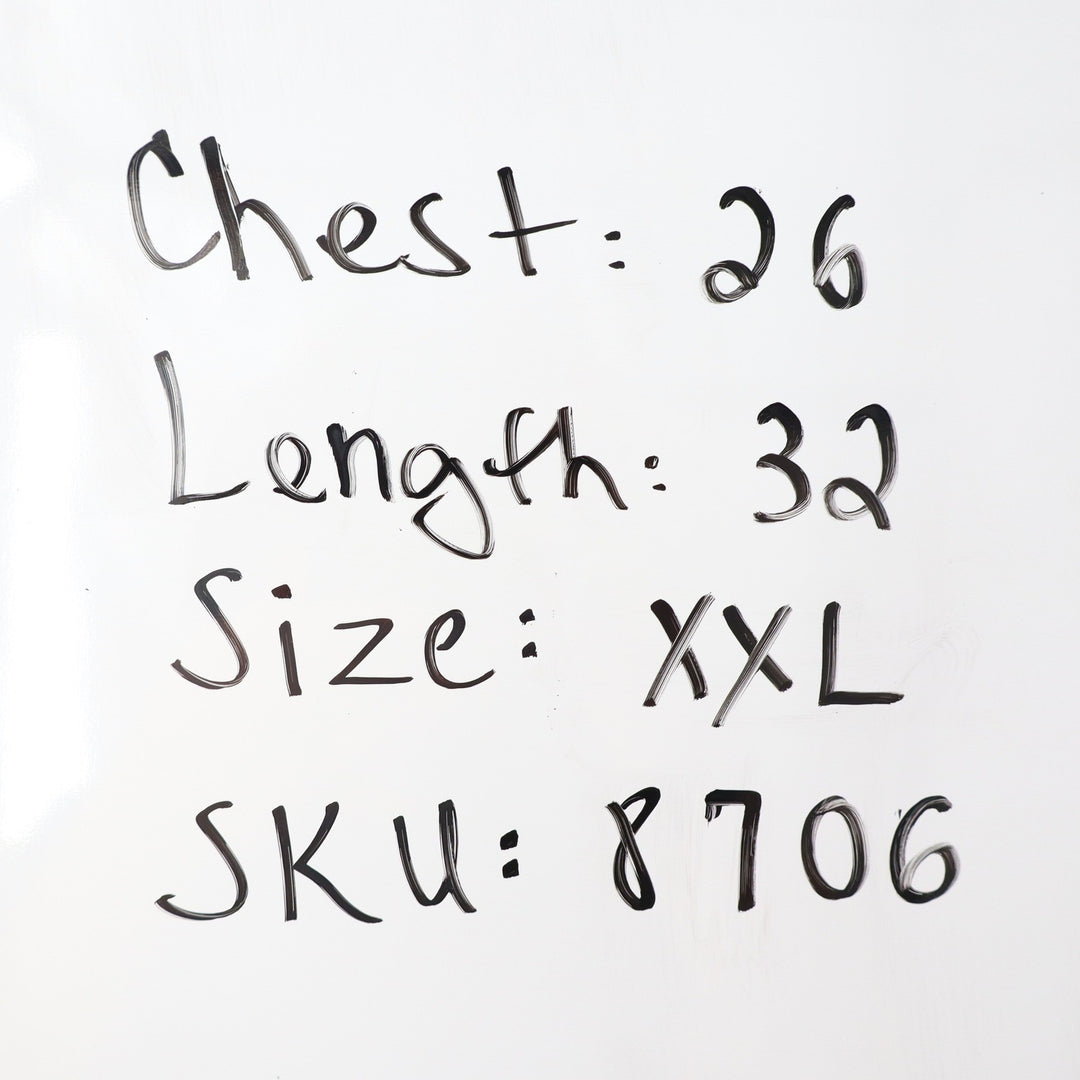 Chest: 26
Length: 32
Size: XXL
SKU: 8706